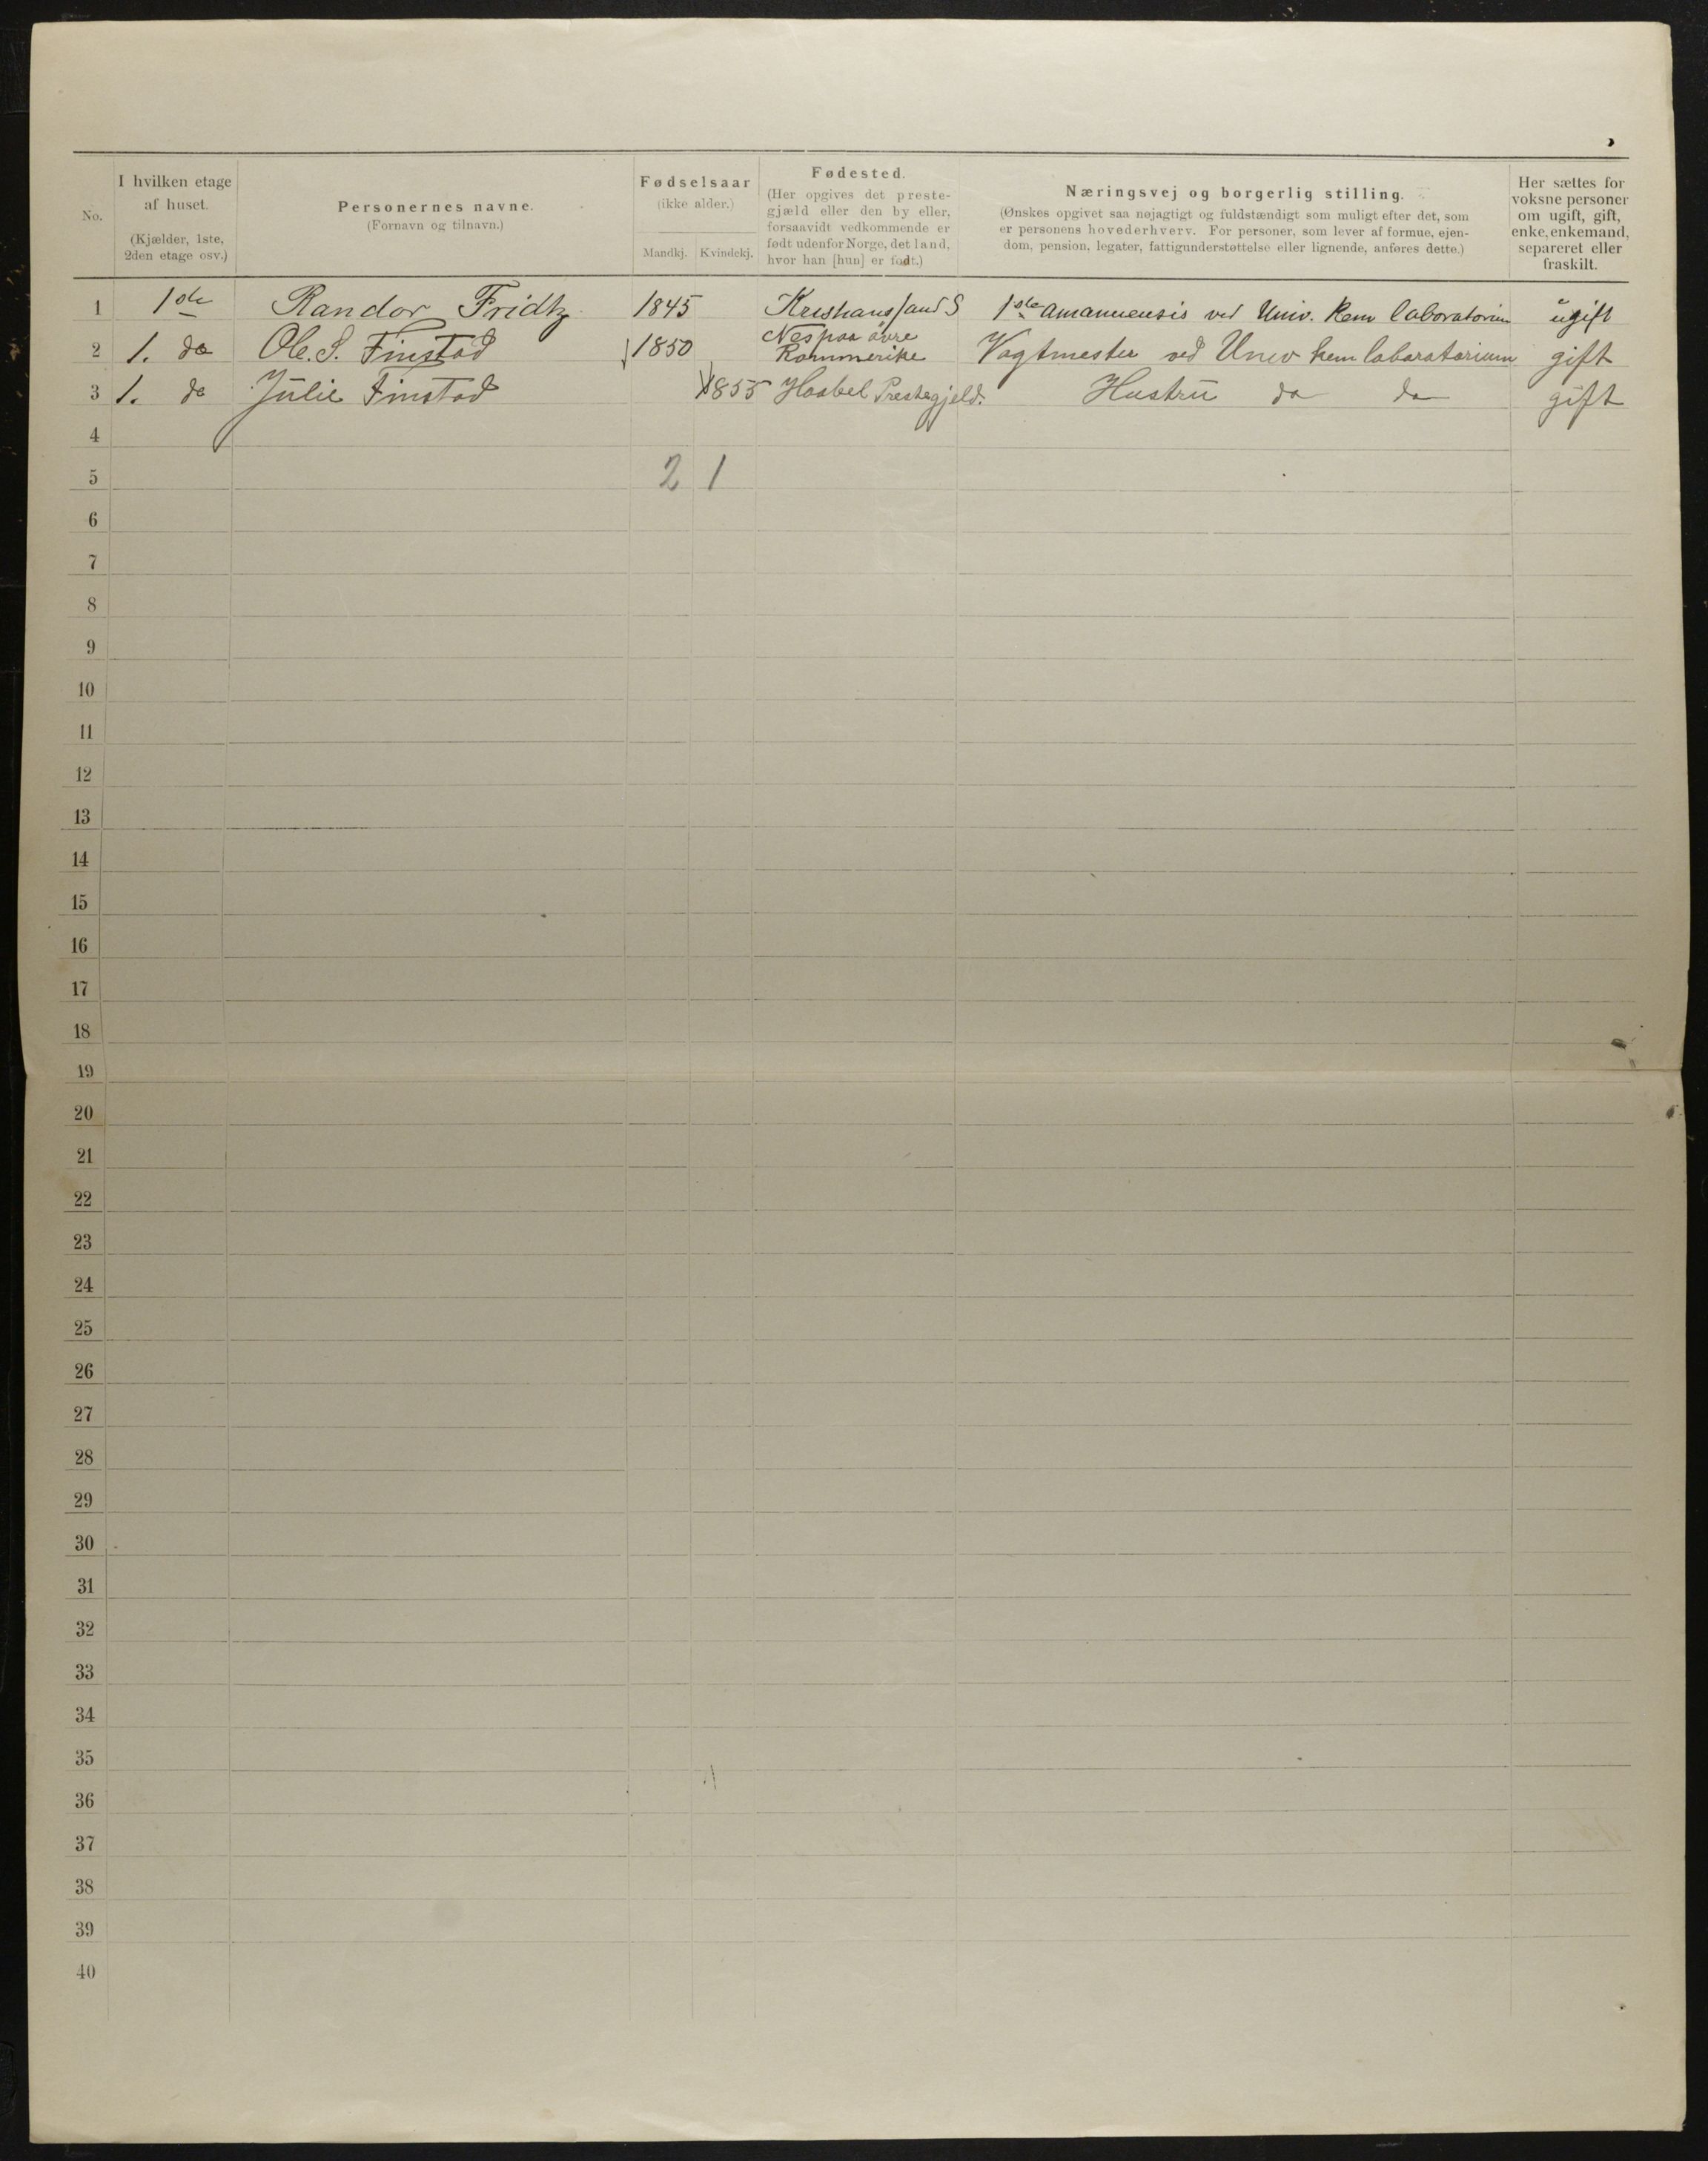 No.
I hvilken etage
af huset.
(Kjælder, 1ste,
2den etage osv.)
Personernes navne.
(Fornavn og tilnavn.)
Fødselsaar
(ikke alder.)
Mandkj. Kvindekj.
Fødested.
(Her opgives det preste-
gjæld eller den by eller,
forsaavidt vedkommende er
født udenfor Norge, det land,
hvor han [hun] er født.)
Næringsvej og borgerlig stilling.
(Ønskes opgivet saa nøjagtigt og fuldstændigt som muligt efter det, som
er personens hovederhverv. For personer, som lever af formue, ejen-
dom, pension, legater, fattigunderstøttelse eller lignende, anføres dette.)
Her sættes for
voksne personer
om ugift, gift,
enke, enkemand,
separeret eller
fraskilt.
1 1ste Randor Fridtz 1845 Kristiansand S 1ste amanuensis ved Univ. Kem laboratorium ugift
2 1. do Ole. S. Finstad 1850 Nes paa øvre
Rommerike Vagtmester ved Univ kem laboratorium gift
3 1. do Julie Finstad 1855 Haabel Prestegjeld. Hustru do do gift
4
5 2 1
6
7
8
9
10
11
12
13
14
15
16
17
18
19
20
21
22
23
24
25
26
27
28
29
30
31
32
33
34
35
36
37
38
39
40